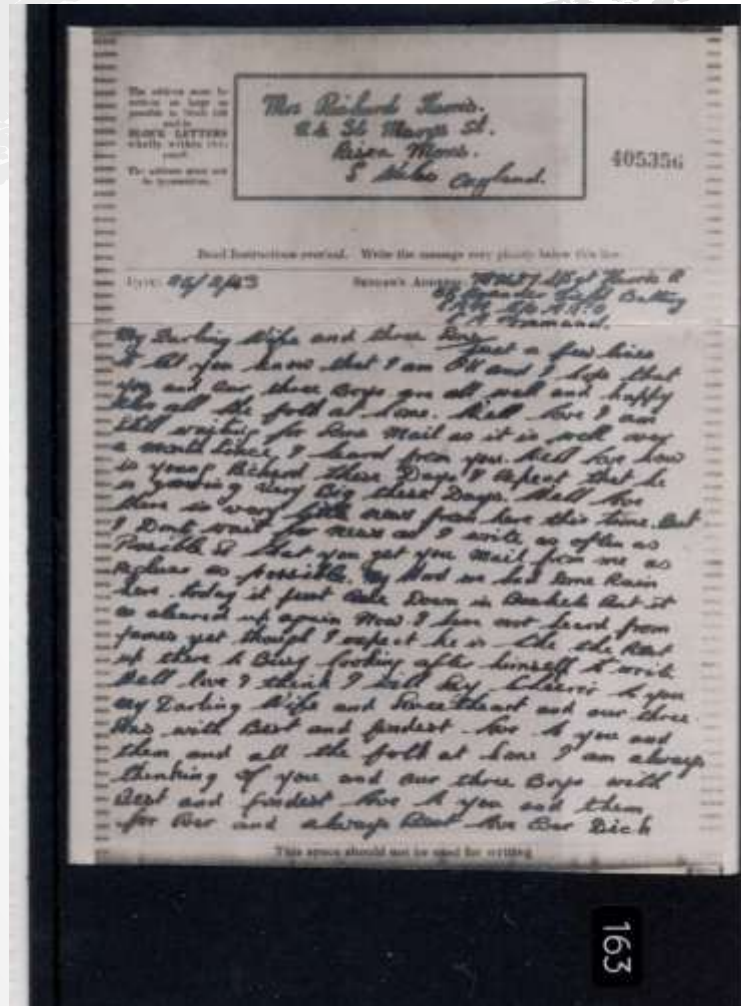 The address must be
written as large as
possible in
BLOCK LETTERS
wholly within this
panel.
The address must not
be typewritten.
Mrs Richard Harris.
St Marys St.
5 Wales England.
405356
Read Instructions overleaf. Write the message very plainly below this line
Date /2/43
Sender's Address Harris R
Battery
Command.
My Darling Wife and three Sons
Just a few lines
to let you know that I am OK and I hope that
you and our three Boys are all well and happy
also all the folk at home. Well love I am
still waiting for some Mail as it is well over
a month since I heard from you. Well love how
is young Richard these Days I expect that he
is growing very Big these Days. Well love
there is very little news from here this time. But
I Dont wait for news as I write as often as
Possible so that you get you mail from me as
as possible. My we had some Rain
here today it just came Down in Buckets But it
as cleared up again Now I have not heard from
James yet though I expect he is like the Rest
up there to Busy looking after himself to write
Well love I think I will say Cheerio to you
my Darling Wife and Sweetheart and our three
Sons with Best and fondest love to you and
them and all the folk at home I am always
thinking of you and our three Boys with
Best and fondest love to you and them
for Ever and always Best love Ever Dick
This space should not be used for writing
163